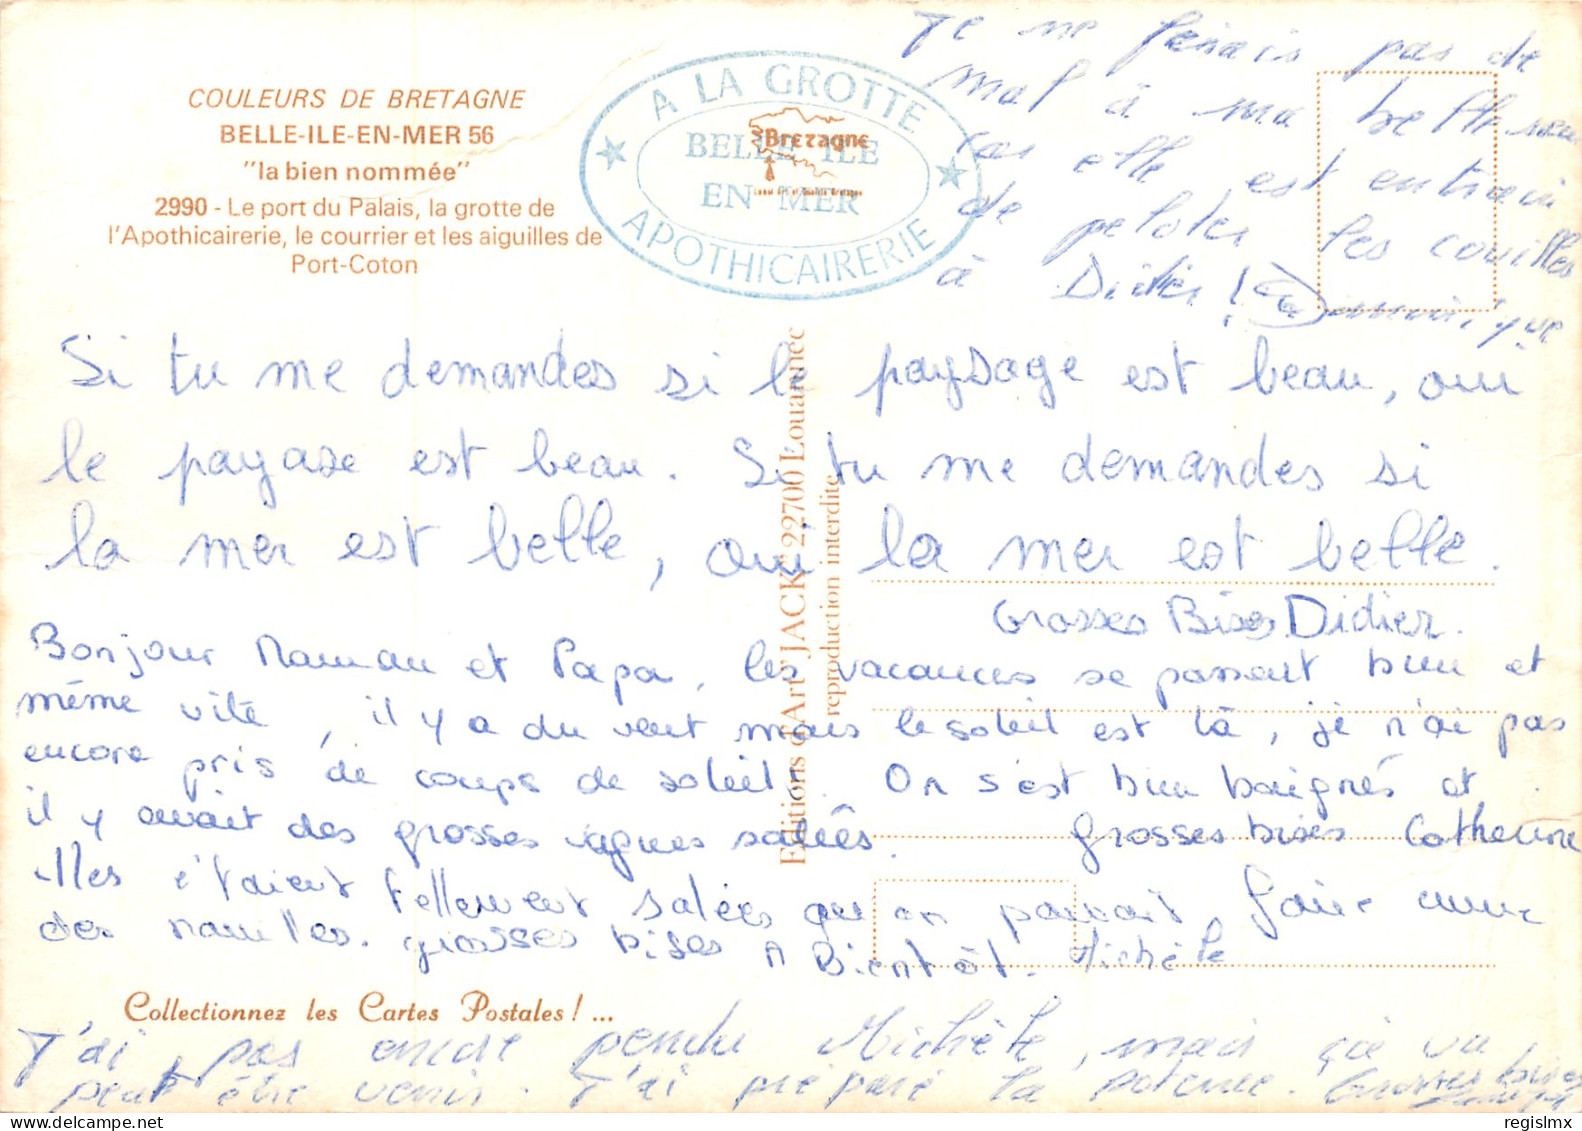 COULEURS DE BRETAGNE
BELLE-ILE-EN-MER 56
"la bien nommée"
2990 - Le port du Palais, la grotte de
l'Apothicairerie, le courrier et les aiguilles de
Port-Coton
A LA GROTTE
BELLE ILE
EN MER
APOTHICAIRERIE
Bretagne
Je ne ferais pas de
mal à ma belle
car elle est entrain
de peloter les couilles
à Didier !
Si tu me demandes si le paysage est beau, oui
le payase est beau. Si tu me demandes si
la mer est belle, oui la mer est belle.
Grosses Bises Didier.
Bonjour Maman et Papa, les vacances se passent bien et
même vite, il y a du vent mais le soleil est là, je n'ai pas
encore pris de coups de soleil. On s'est bien baignés et
il y avait des grosses vagues salées. grosses bises Catherine
elles étaient tellement salées qu'on pouvait faire cuire
des nouilles. grosses bises A Bientôt. Michèle
Collectionnez les Cartes Postales ! ...
J'ai pas encore pendu Michèle, mais ça va
peut être venir. J'ai préparé la potence. Grosses bises
Editions d'Art "JACK" 22700 Louannec
reproduction interdite
regislmx